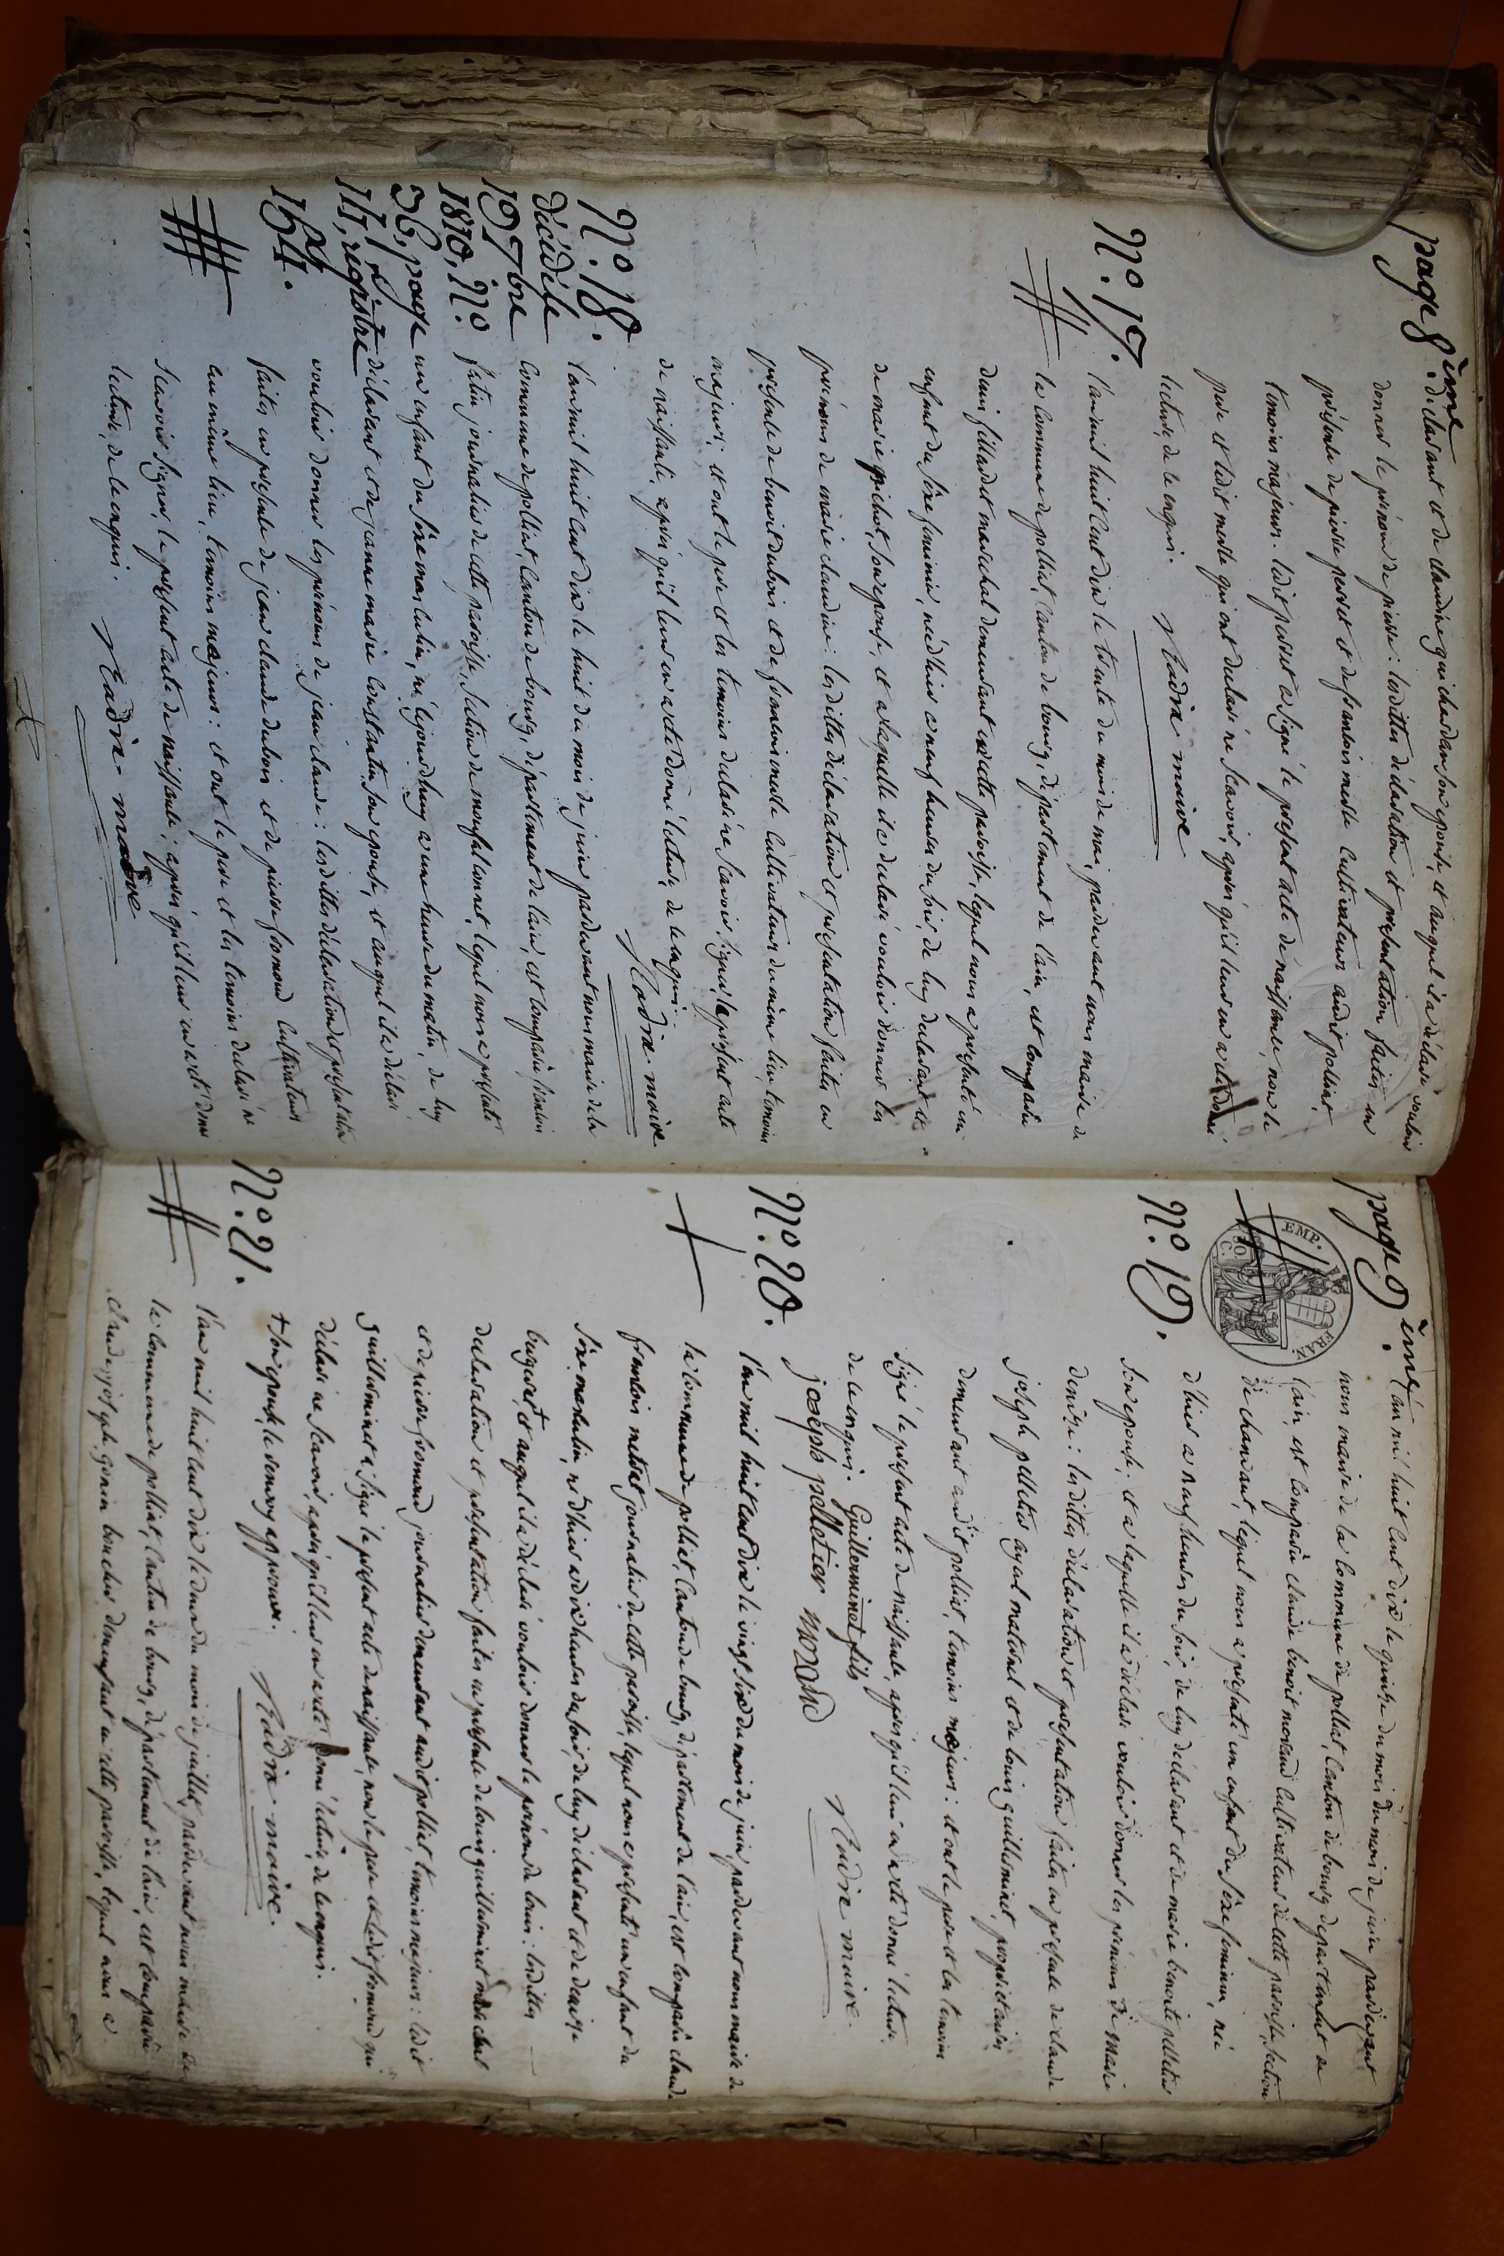 page 8ème
déclarant et de claudine guichardan son epouse, et auquel il a déclaré vouloir
donner le prénom de pierre : lesdittes déclaration et presentation faites en
présence de pierre pervet et de francois merle cultivateurs audit polliat,
temoins majeurs. ledit pervet a signé le present acte de naissance, non le
pere et ledit merle qui ont declaré ne scavoir, après qu'il leur en a été donné
lecture de ce enquis. Nadre maire
N.o 17.
l'an mil huit cent dix le trente du mois de mai, pardevant nous maire de
la commune de polliat, canton de bourg, département de l'ain, est comparu
denis fillardet marechal demeurant en cette paroisse, lequel nous a presenté un
enfant du sexe feminin, né d'hier a neuf heures du soir, de luy declarant et
de marie michot, son epouse, et a laquelle il a declaré vouloir donner les
prénoms de marie claudine : lesdittes déclaration et présentation faites en
presence de benoit dubois et de francois merle cultivateurs du même lieu, temoins
majeurs ; et ont le pere et les temoins declaré ne scavoir signer le present acte
de naissance, après qu'il leur en a été donné lecture de ce enquis.
Nadre maire
N.o 18.
décédé le
19 7bre
1810, N.o
36, page
14, registre
pg
154.
l'an mil huit cent dix le huit du mois de juin pardevant nous maire de la
commune de polliat, canton de bourg, département de l'ain, est comparu
journalier de cette paroisse, section de lequel nous a presenté
un enfant du sexe masculin, né le jourd'huy a une heure du matin, de luy
déclarant et de jeanne marie constantin, son epouse, et auquel il a déclaré
vouloir donner les prénoms de jean claude : lesdittes déclaration et presentation
faites en presence de jean claude dubois et de pierre fromond cultivateurs
au même lieu, temoins majeurs : et ont le pere et les temoins declaré ne
scavoir signer le present acte de naissance, après qu'il leur en a été donné
lecture, de ce enquis. Nadre maire
page 9ème
N.o 19.
EMP. FRAN.
50. C.
l'an mil huit cent dix le quinze du mois du mois de juin pardevant
nous maire de la commune de polliat, canton de bourg departement de
l'ain, est comparu claude benoit morand cultivateur de cette paroisse, section
de chanavant, lequel nous a presenté un enfant du sexe feminin, né
d'hier a neuf heures du soir, de luy déclarant et de marie benoite pelletier
son epouse, et a laquelle il a déclaré vouloir donner les prénoms de marie
denise : lesdittes déclaration et presentation faites en presence de claude
joseph pelletier ayeul maternel et de louis guilleminet, proprietaires
demeurant audit polliat, temoins majeurs : et ont le pere et les temoins
signé le present acte de naissance, après qu'il leur en a été donné lecture
de ce enquis. Guilleminet fils
joseph pelletier morand Nadre maire
N.o 20.
l'an mil huit cent dix le vingt six du mois de juin pardevant nous maire de
la commune de polliat, canton de bourg, département de l'ain, est comparu claude
francois journalier de cette paroisse, lequel nous a presenté un enfant du
sexe masculin, né d'hier a dix heures du soir, de luy declarant et de denise
buguet + et auquel il a déclaré vouloir donner le prénom de louis : lesdittes
declaration et présentation faites en presence de louis guilleminet marechal
et de pierre fromond journalier demeurant audit polliat, temoins majeurs : ledit
guilleminet a signé le present acte de naissance, non le pere et ledit fromond qui
déclaré ne scavoir, après qu'il leur en a été donné lecture, de ce enquis.
+ son epouse, le renvoy approuvé. Nadre maire.
N.o 21.
l'an mil huit cent dix le deux du mois de juillet, pardevant nous maire de
la commune de polliat, canton de bourg, département de l'ain, est comparu
claude joseph gonin boucher demeurant en cette paroisse, lequel nous a